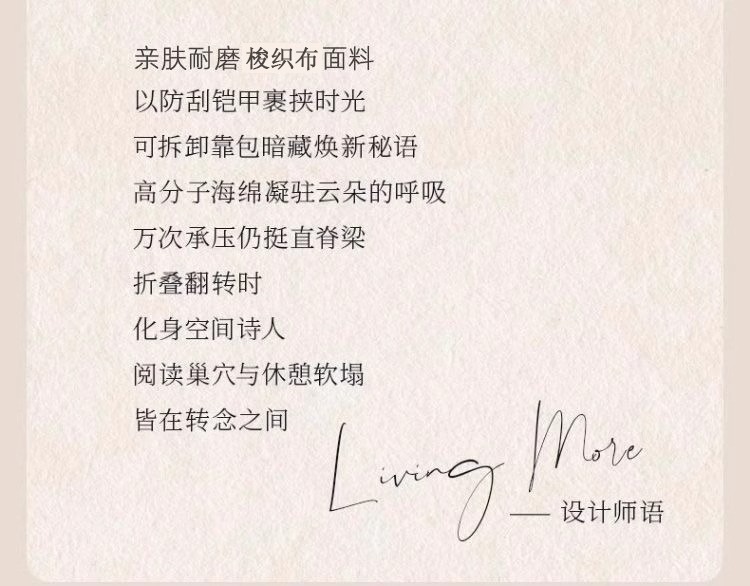 亲肤耐磨 梭织布面料
以防刮铠甲裹挟时光
可拆卸靠包暗藏焕新秘语
高分子海绵凝驻云朵的呼吸
万次承压仍挺直脊梁
折叠翻转时
化身空间诗人
阅读巢穴与休憩软塌
皆在转念之间
Living More
—— 设计师语